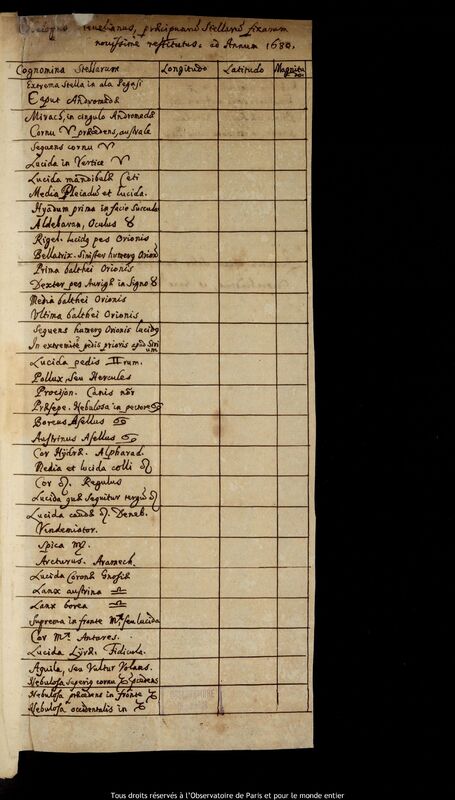 Hevelianus, præcipuarū Stellarū fixarum
novissime restitutus. ad Annum 1680.
Cognomina Stellarum Longitudo Latitudo Magnitudo
Extrema Stella in ala Pegasi
Caput Andromedæ
Mirach, in cingulo Andromedæ
Cornu ♈ præcedens, australe
Sequens cornu ♈
Lucida in Vertice ♈
Lucida mandibulæ Ceti
Media Pleiadū et lucida.
Hyadum prima in facie Succula
Aldebaran, Oculus ♉
Rigel. lucidus pes Orionis
Bellatrix. Sinister humerus Orionis
Prima balthei Orionis
Dexter pes Aurigæ in Signo ♉
Media balthei Orionis
Ultima balthei Orionis
Sequens humerus Orionis lucidus
In extremite pedis prioris apud Sirium
Lucida pedis ♊rum.
Pollux, seu Hercules
Procijon. Canis nōr
Præsepe. Nebulosa in pectore ♋
Boreus Asellus ♋
Austrinus Asellus ♋
Cor Hydræ. Alpharad.
Media et lucida colli ♌
Cor ♌. Regulus
Lucida quæ sequitur tergū ♌
Lucida caudæ ♌. Deneb.
Vendemiator.
Spica ♍.
Arcturus. Aramech.
Lucida Coronæ Gnosiæ
Lanx austrina ♎
Lanx borea ♎
Suprema in fronte ♏ seu lucida
Cor ♏. Antares.
Lucida Lyræ. Fidicula.
Aquila, seu Vultur Volans.
Nebulosa superius cornu ♑ præcedens
Nebulosa præcedens in fronte ♑
Nebulosa occidentalis in ♑
Tous droits réservés à l'Observatoire de Paris et pour le monde entier